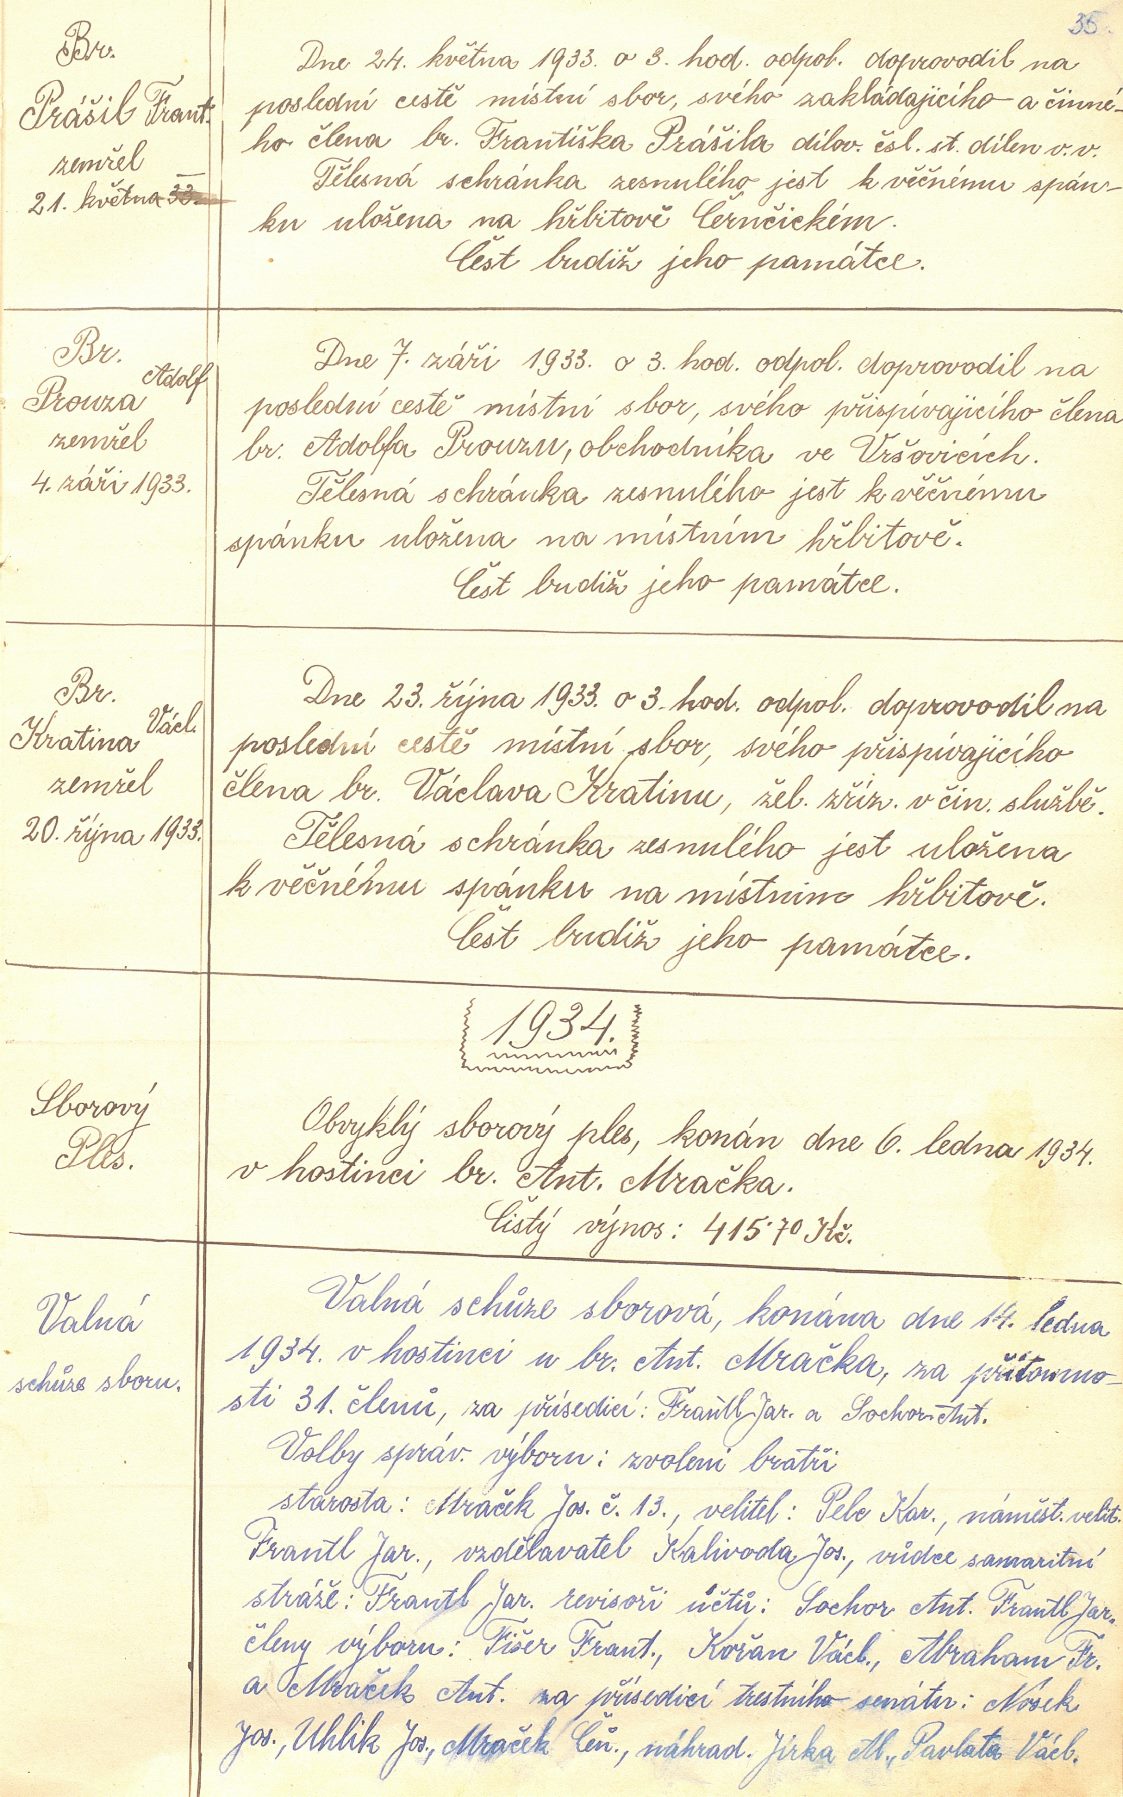 35.
Br.
Prášil Frant.
zemřel
21. května 33.
Dne 24. května 1933. o 3. hod. odpol. doprovodil na
poslední cestě místní sbor, svého zakládajícího a činné-
ho člena br. Františka Prášila dílov. čsl. st. dílen v. v.
Tělesná schránka zesnulého jest k věčnému spán-
ku uložena na hřbitově Černčickém.
Čest budiž jeho památce.
Br.
Prouza Adolf
zemřel
4. září 1933.
Dne 7. září 1933. o 3. hod. odpol. doprovodil na
poslední cestě místní sbor, svého přispívajícího člena
br. Adolfa Prouzu, obchodníka ve Vršovicích.
Tělesná schránka zesnulého jest k věčnému
spánku uložena na místním hřbitově.
Čest budiž jeho památce.
Br.
Kratina Václ.
zemřel
20. října 1933.
Dne 23. října 1933. o 3. hod. odpol. doprovodil na
poslední cestě místní sbor, svého přispívajícího
člena br. Václava Kratinu, žel. zříz. v čin. službě.
Tělesná schránka zesnulého jest uložena
k věčnému spánku na místním hřbitově.
Čest budiž jeho památce.
1934.
Sborový
Ples.
Obvyklý sborový ples, konán dne 6. ledna 1934.
v hostinci br. Ant. Mračka.
Čistý výnos: 415·70 Kč.
Valná
schůze sboru.
Valná schůze sborová, konána dne 14. ledna
1934. v hostinci u br. Ant. Mračka, za přítomno-
sti 31. členů, za přísedící: Frantl Jar. a Sochor Ant.
Volby správ. výboru: zvoleni bratři
starosta: Mraček Jos. č. 13., velitel: Pelc Kar., náměst. velit.
Frantl Jar., vzdělavatel Kalivoda Jos., vůdce samaritní
stráže: Frantl Jar. revisoři účtů: Sochor Ant. Frantl Jar.
členy výboru: Fišer Frant., Kořan Václ., Abraham Fr.
a Mraček Ant. za přísedící trestního senátu: Nosek
Jos., Uhlik Jos., Mraček Čeň., náhrad. Jirka Al., Pavlata Václ.